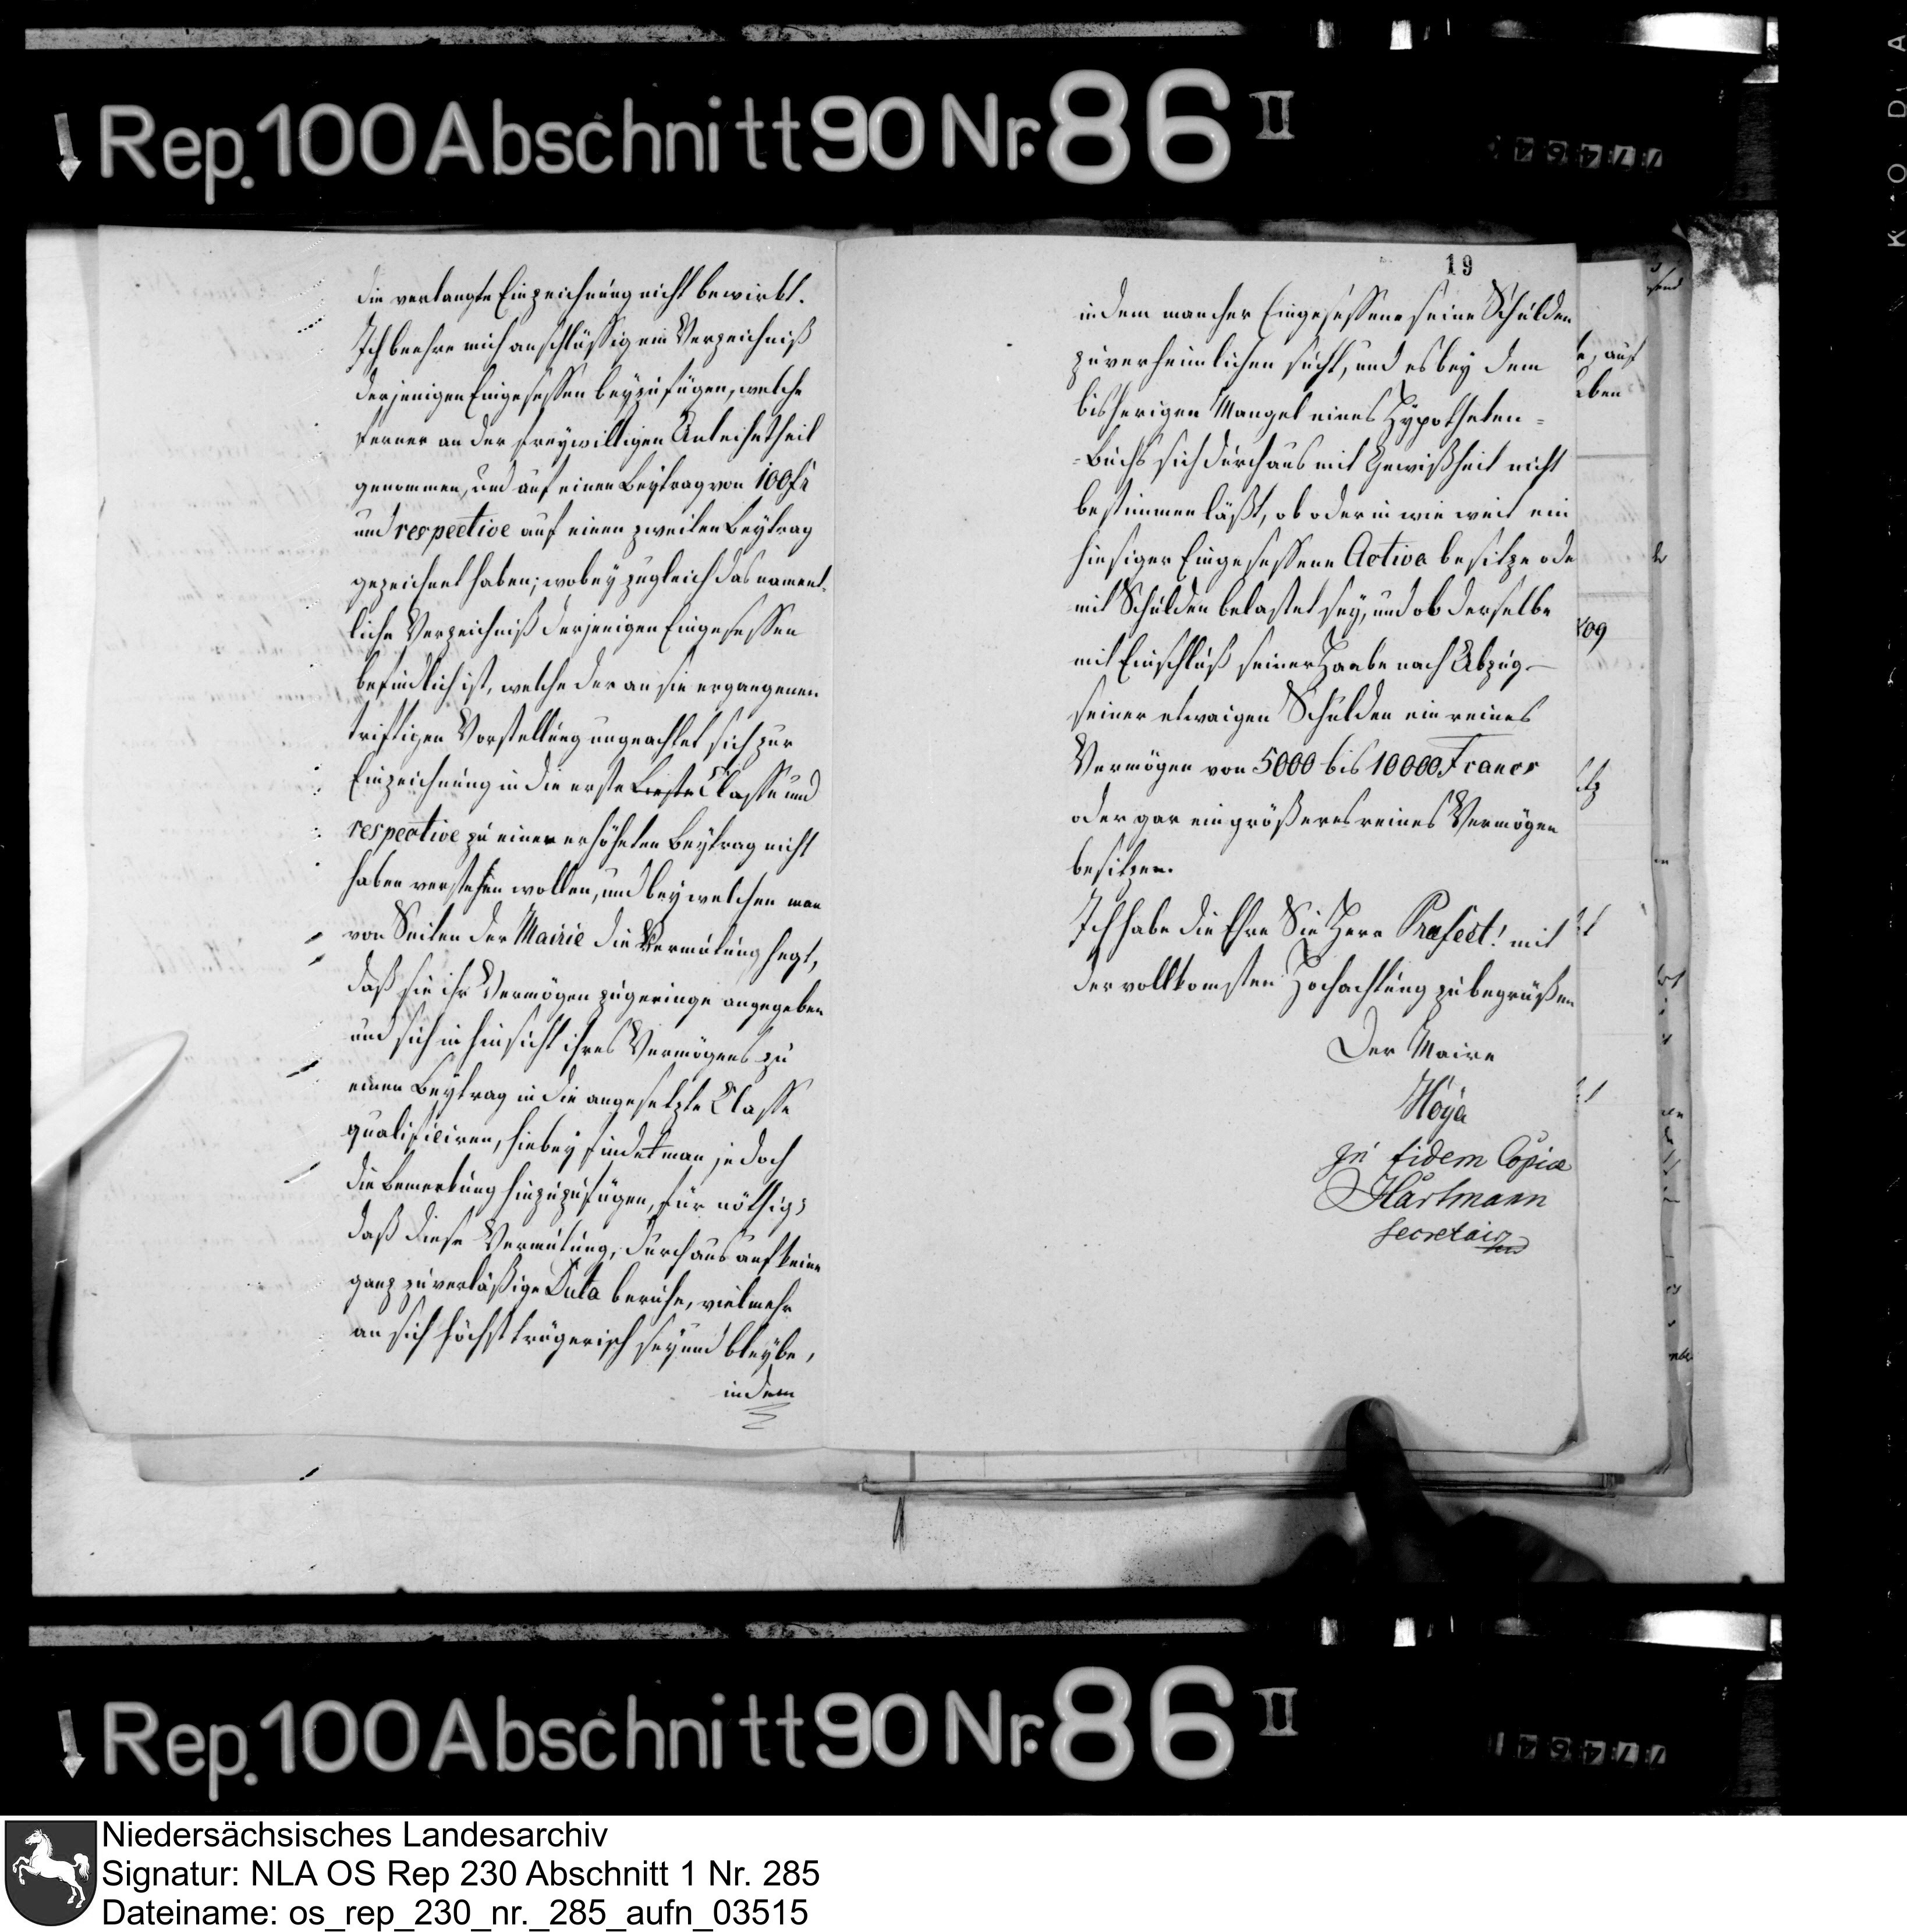 Rep. 100 Abschnitt 90 Nr. 86 II
die verlangte Einzeichnung nicht bewirkt.
Ich beehre mich anschlüssig ein Verzeichniß
derjenigen Eingesessen beyzufügen, welche
ferner an der freywilligen Anleihe theil
genommen, und auf einen Beytrag von 100 fr
und respective auf einen zweiten Beytrag
gezeichnet haben; wobey zugleich das nament-
liche Verzeichniß derjenigen Eingesessen
befindlich ist, welche der an sie ergangenen
triftigen Vorstellung ungeachtet sich zur
Einzeichnung in die erste Classe und
respective zu einer erhöheten Beytrag nicht
haben verstehen wollen, und bey welchen man
von Seiten der Mairie die Vermutung hegt,
daß sie ihr Vermögen zu geringe angegeben
und sich in hinsicht ihres Vermögens zu
einen Beytrag in die angesetzte Classe
qualificiren, hiebey findet man jedoch
die Bemerkung hinzuzufügen, für nöthig,
daß diese Vermutung, durchaus auf keine
ganz zuverläßige Data beruhe, vielmehr
an sich höchst trügerisch sey und bleybe,
indem
19
indem mancher Eingesessene seine Schulden
zu verheimlichen sucht, und es bey dem
bisherigen Mangel eines Hypotheken=
=Buchs sich durchaus mit Gewißheit nicht
bestimmen läßt, ob oder in wie weit ein
hiesiger Eingesessene Activa besitze ode
mit Schulden belastet sey, und ob derselbe
mit Einschluß seiner Haabe nach Abzug
seiner etwaigen Schulden ein reines
Vermögen von 5000 bis 10000 Francs
oder gar ein größeres reines Vermögen
besitzen.
Ich habe die Ehre Sie Herr Praefect! mit
der vollkomsten Hochachtung zu begrüßen
Der Maire
Hoya
In fidem Copiae
Hartmann
Secretair
Rep. 100 Abschnitt 90 Nr. 86 II
Niedersächsisches Landesarchiv
Signatur: NLA OS Rep 230 Abschnitt 1 Nr. 285
Dateiname: os_rep_230_nr._285_aufn_03515